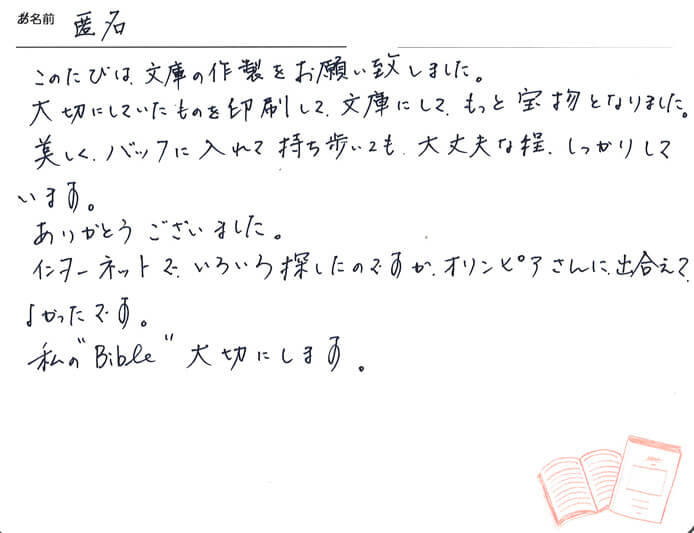 お名前 匿名
このたびは、文庫の作製をお願い致しました。
大切にしていたものを印刷して、文庫にして、もっと宝物となりました。
美しく、バックに入れて持ち歩いても、大丈夫な程、しっかりして
います。
ありがとうございました。
インターネットで、いろいろ探したのですが、オリンピアさんに、出合えて、
よかったです。
私の"Bible"大切にします。